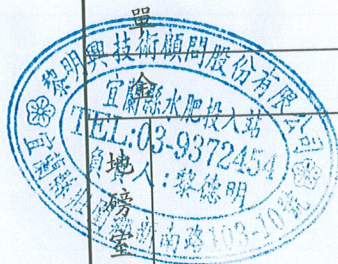 單
黎明興技術顧問股份有限公司
宜蘭縣水肥投入站
TEL:03-9372454
人:黎德明
地磅室
宜蘭縣壯圍鄉新南路103-10號